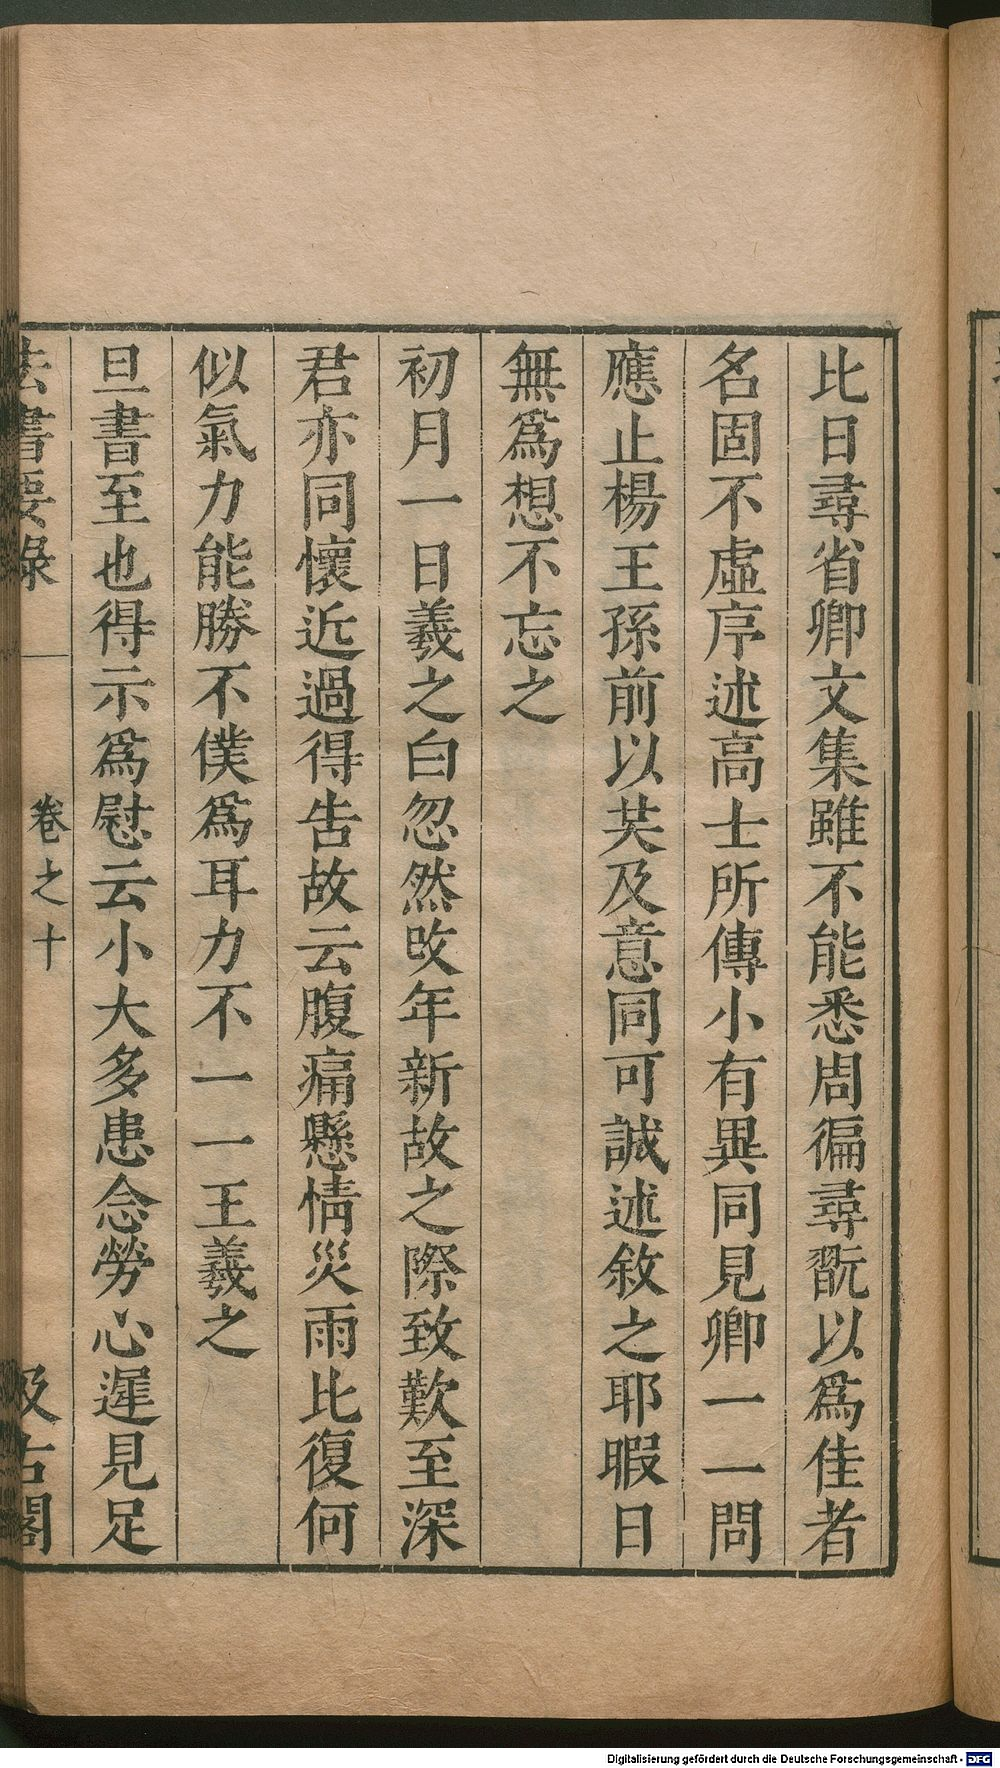 比日尋省卿文集雖不能悉周徧尋翫以為佳者
名固不虛序述高士所傳小有異同見卿一一問
應止楊王孫前以共及意同可誠述敘之耶暇日
無為想不忘之
初月一日羲之白忽然改年新故之際致歎至深
君亦同懷近過得告故云腹痛懸情災雨比復何
似氣力能勝不僕為耳力不一一王羲之
旦書至也得示為慰云小大多患念勞心遲見足
法書要錄
卷之十
汲古閣
Digitalisierung gefördert durch die Deutsche Forschungsgemeinschaft - DFG